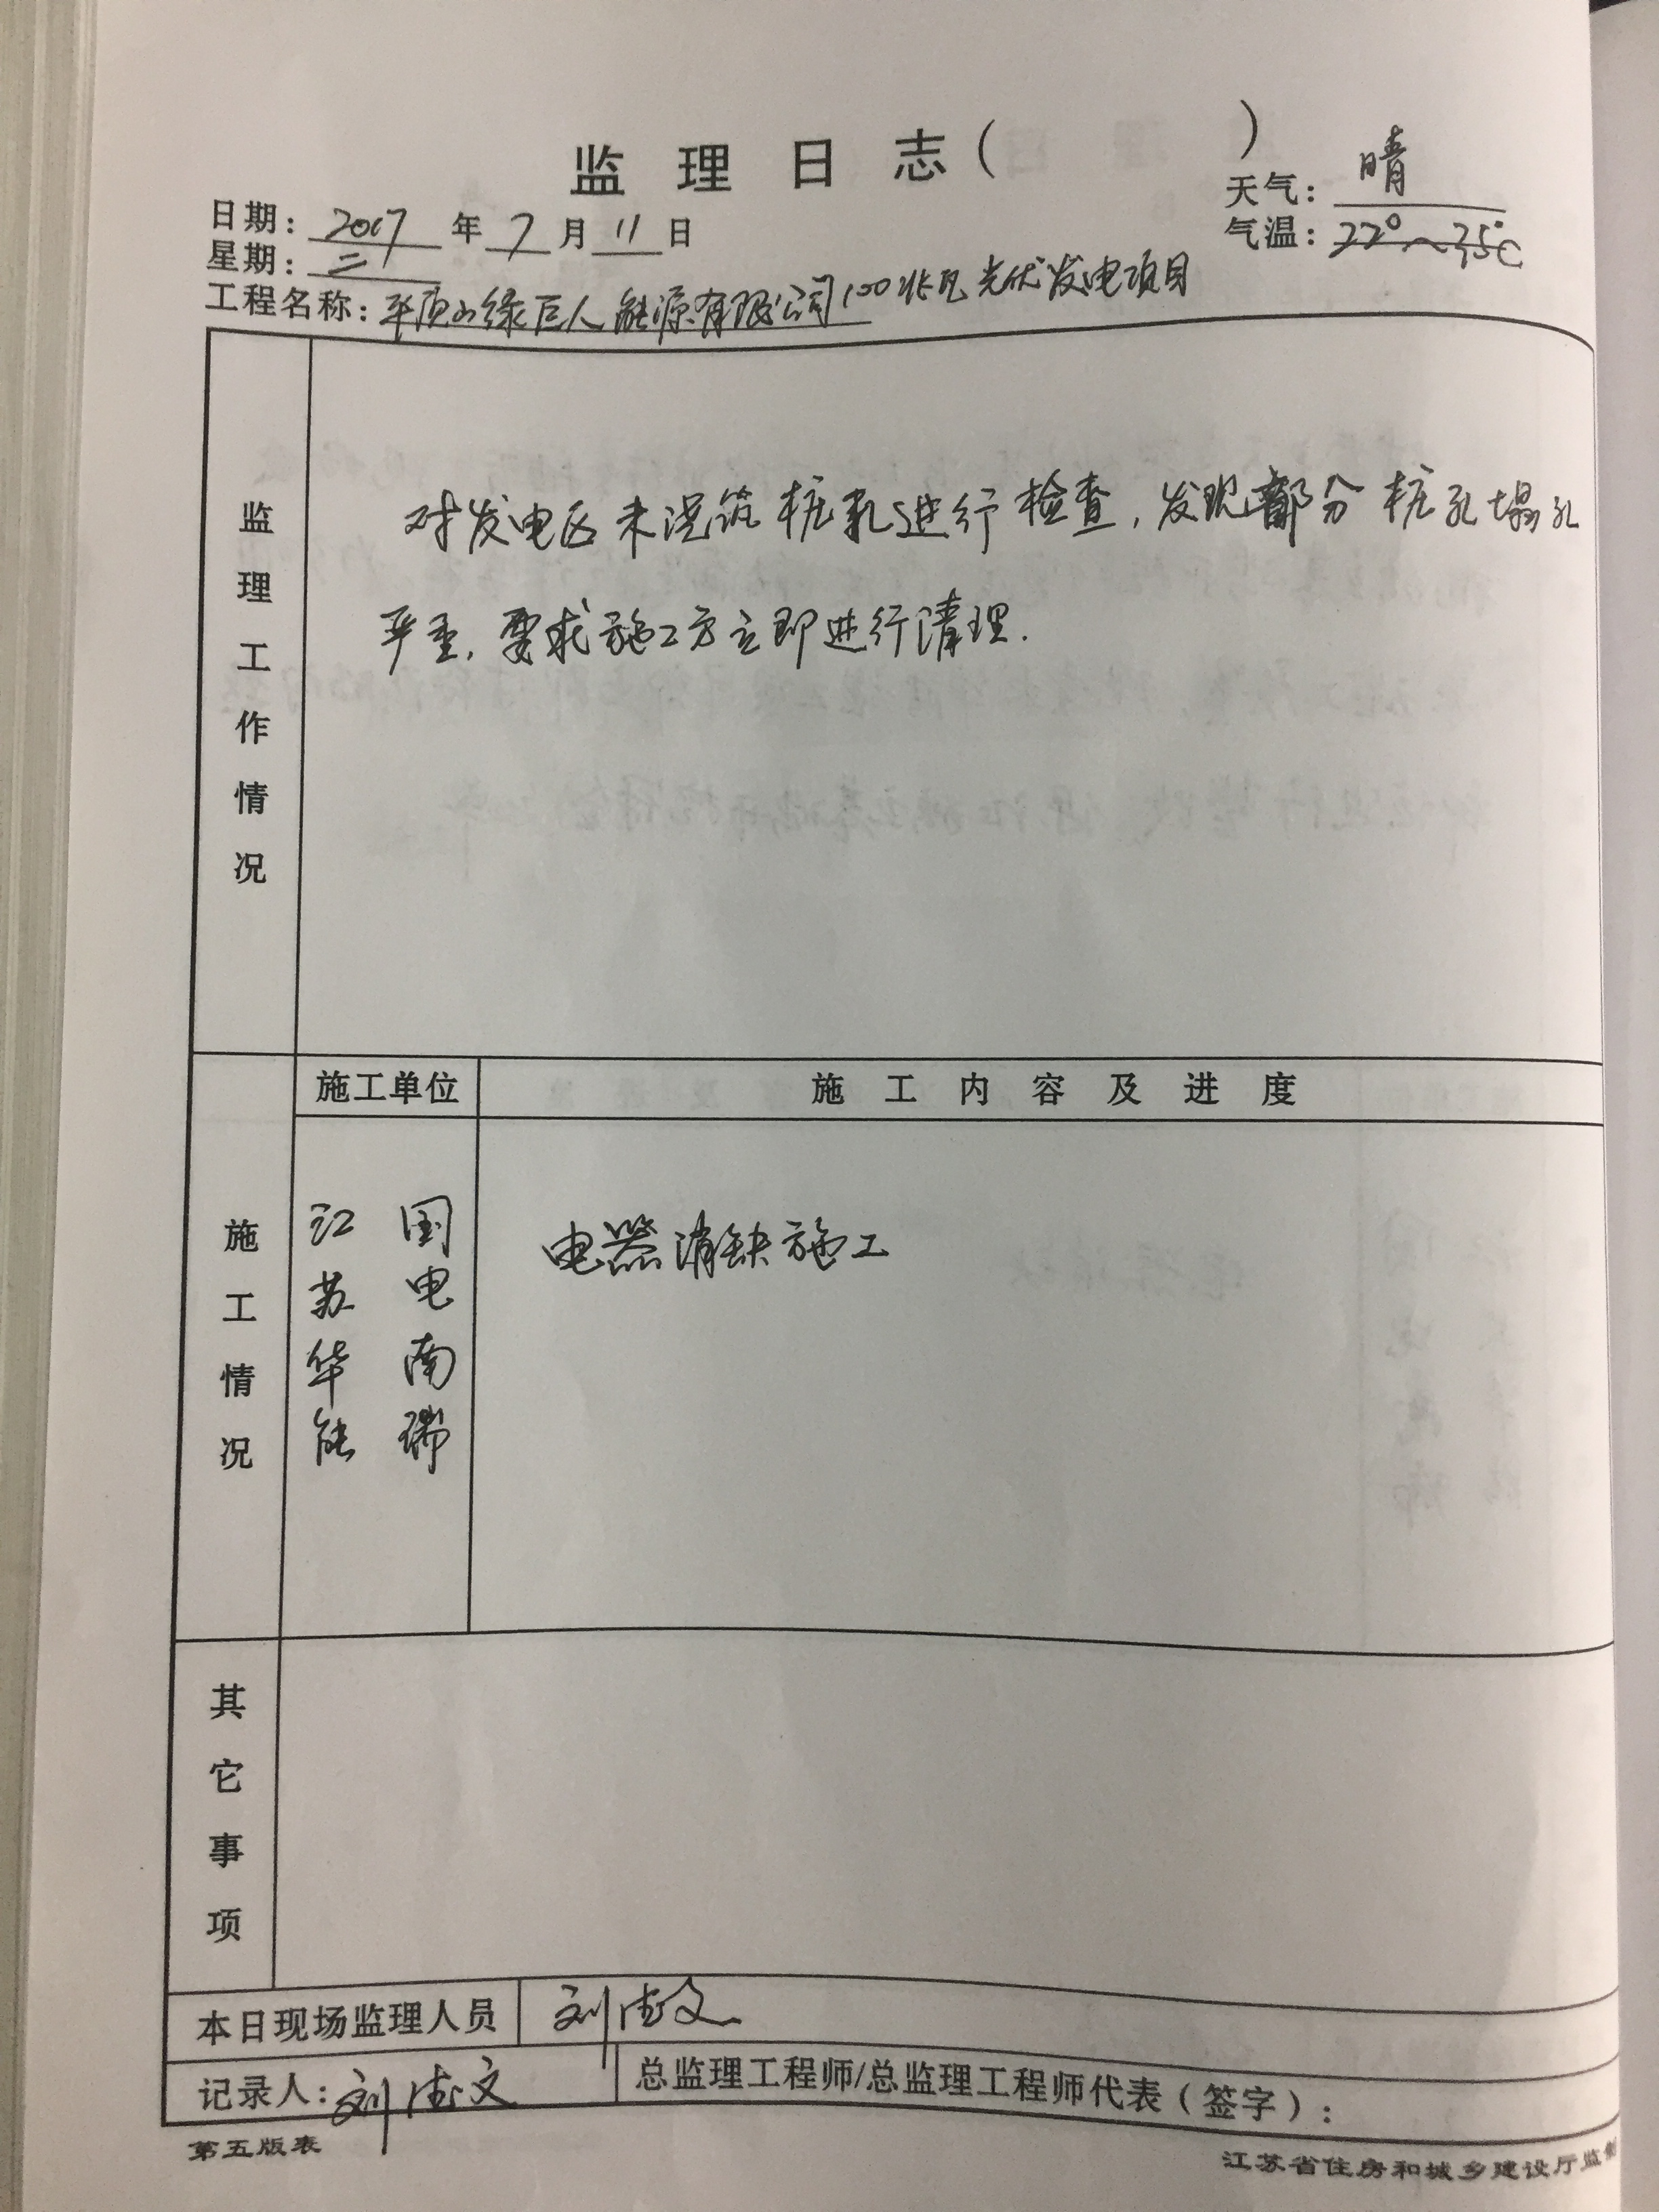 监理日志（ ）
日期：2017年7月11日 天气：晴
星期：二 气温：22°~35℃
工程名称：平顶山绿巨人能源有限公司100兆瓦光伏发电项目
监理工作情况
对发电区未浇筑桩孔进行检查，发现部分桩孔塌孔
严重，要求施工方立即进行清理.
施工单位 施工内容及进度
施工情况
江苏华能
国电南瑞
电器消缺施工
其它事项
本日现场监理人员 刘德文
记录人：刘德文 总监理工程师/总监理工程师代表（签字）：
第五版表 江苏省住房和城乡建设厅监制